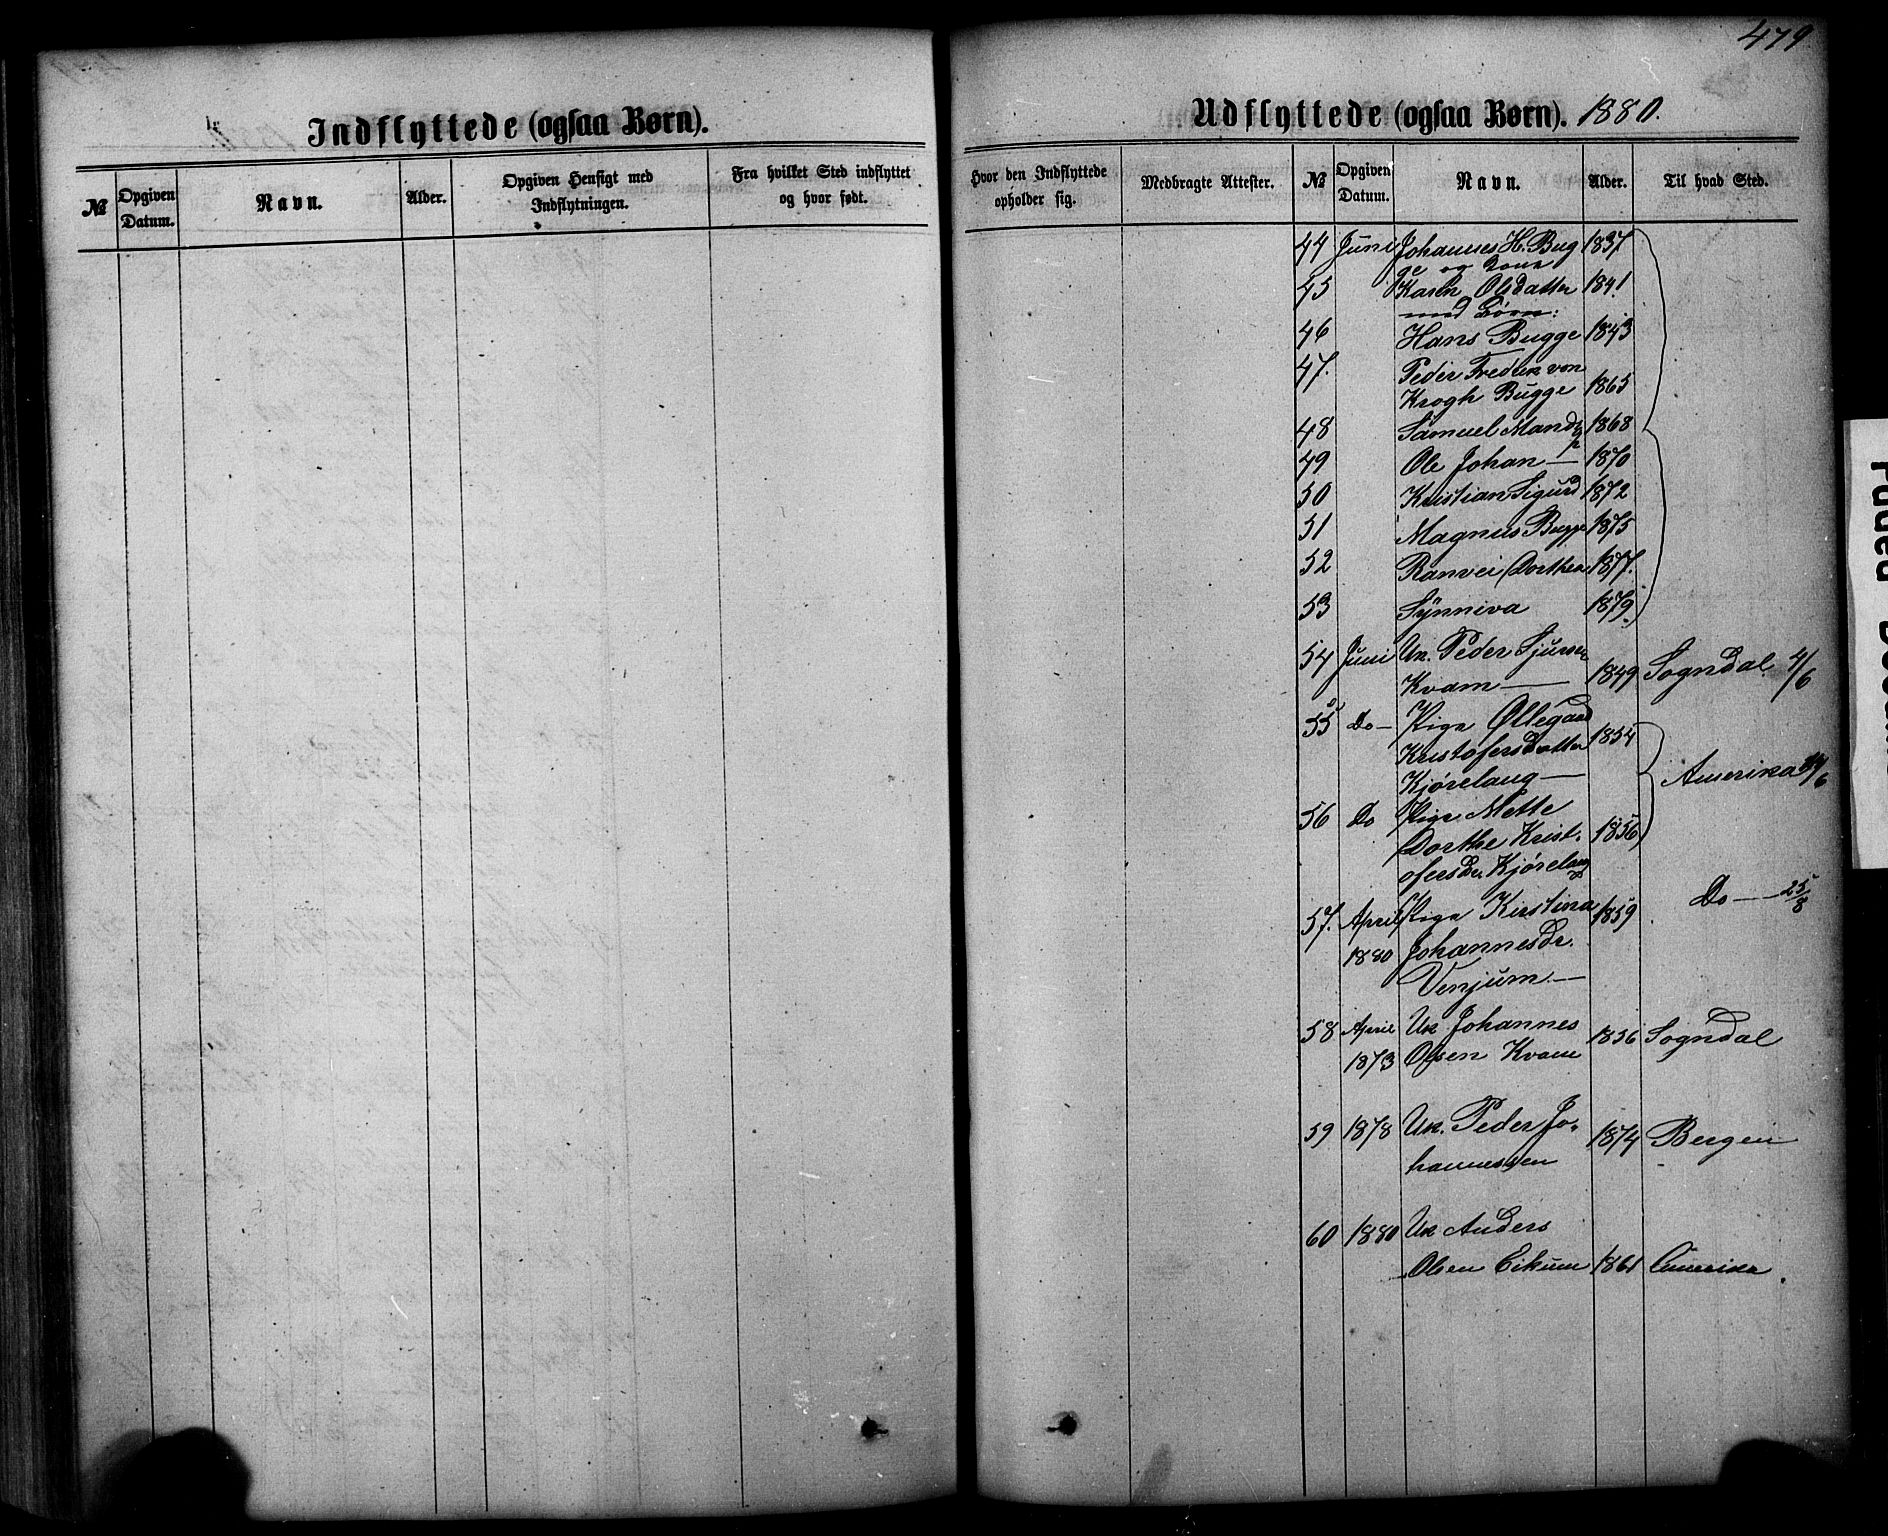 479
Indflyttede (ogsaa Børn).
№ Opgiven Datum. Navn. Alder. Opgiven Hensigt med Indflytningen. Fra hvilket Sted indflyttet og hvor født.
Udflyttede (ogsaa Børn). 1880.
Hvor den Indflyttede opholder sig. Medbragte Attester. № Opgiven Datum. Navn. Alder. Til hvad Sted.
44 Juni Johannes H. Bug 1837
ge og Kone
45 Karen Olsdatter 1841
med Børn:
46 Hans Bugge 1843
47. Peder Fredrik von
Krogh Bugge 1865
48 Samuel Mandr 1868
49 Ole Johan — 1870
50 Kristian Sigurd 1872
51 Magnus Bugge 1875
52 Ranvei Dorthea 1877.
53 Synniva 1879.
54 Juni Uk. Peder Sjursen
Kvam — 1849 Sogndal 4/6
55 Do — Pige Øllegaard 1854
Kristofersdatter
Kjørelaug — Amerika /6
56 Do Pige Mette
Dorthe Krist- 1856
ofersdr. Kjørelaug
57. April Pige Kirstina 1859 Do — 25/8
1880 Johannesdr.
Venjum —
58 April Uk Johannes 1856 Sogndal
1873 Olsen Kvam
59 1878 Uk. Peder Jo- 1874 Bergen
hannessen
60 1880 Uk Anders
Olsen Eikum 1861 Amerika